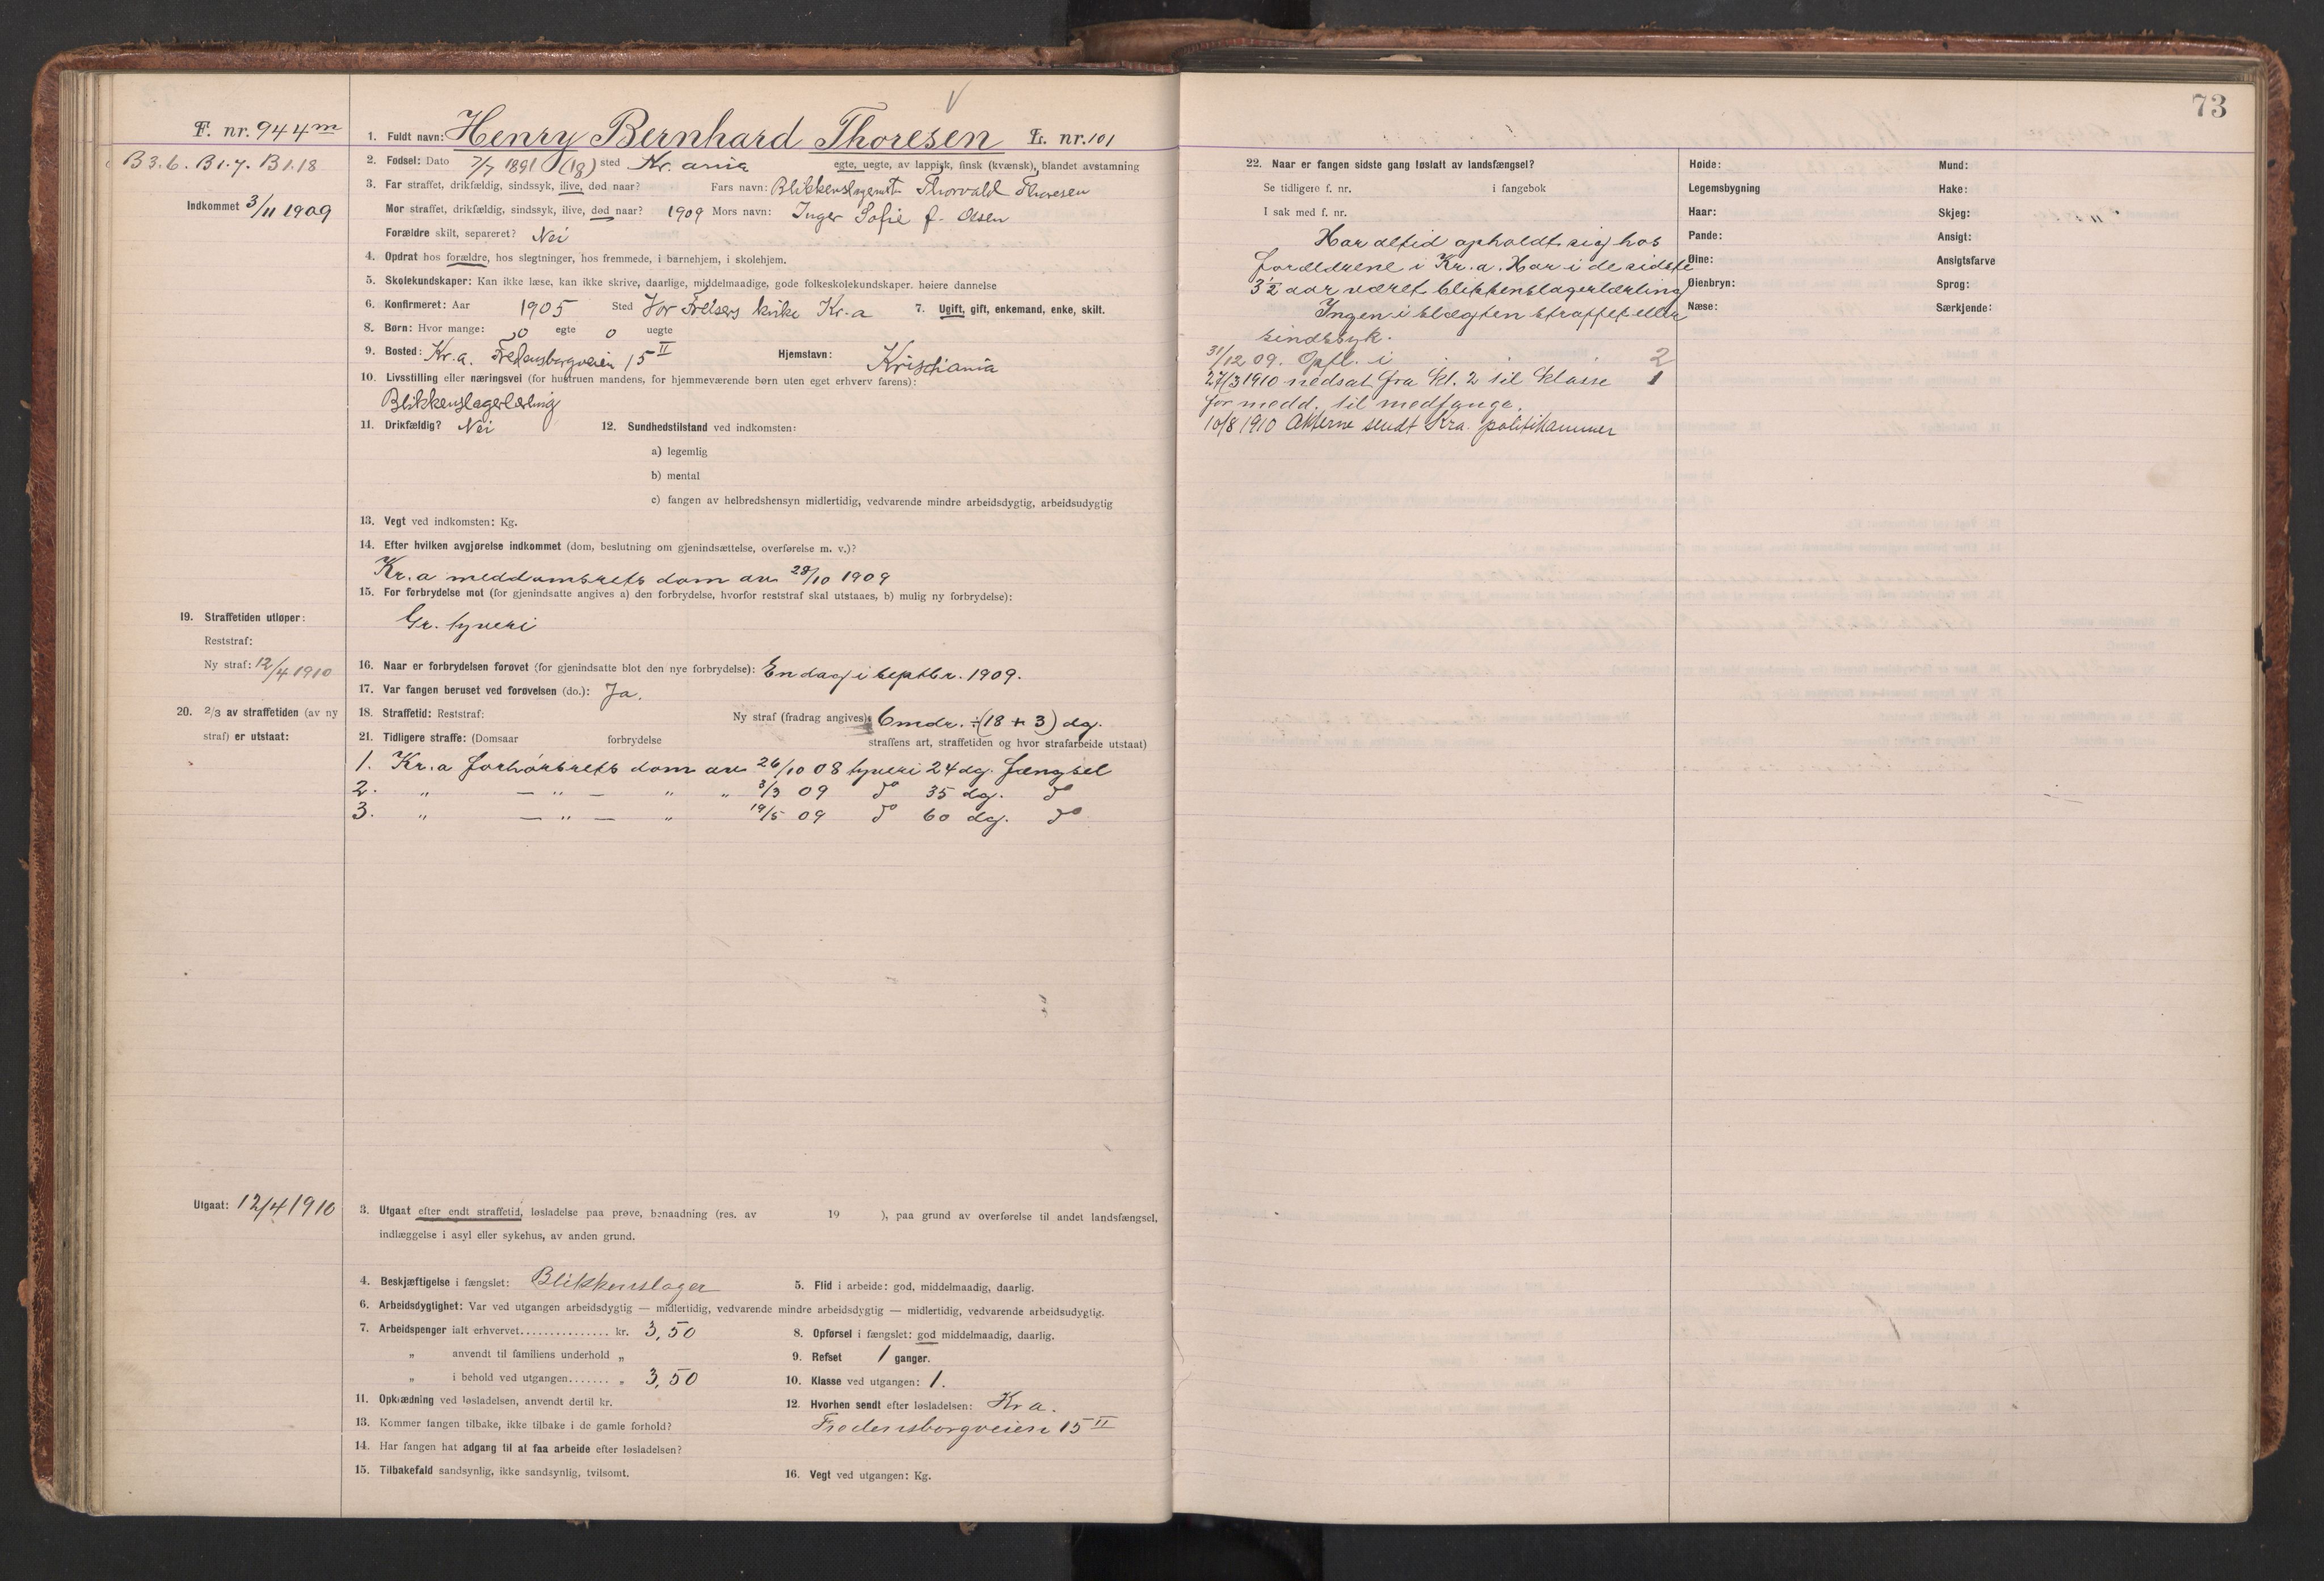 F. nr. 944 m
B 3. 6. B 1. 7. B 1. 18
Indkommet 3/11 1909
1. Fuldt navn: Henry Bernhard Thoresen L. nr. 101
2. Fødsel: Dato 7/7 1891 (18) sted Kr.ania egte, uegte, av lappisk, finsk (kvænsk), blandet avstamning
3. Far straffet, drikfældig, sindssyk, ilive, død naar? Fars navn: Blikkenslagermstr Thorvald Thoresen
Mor straffet, drikfældig, sindssyk, ilive, død naar? 1909 Mors navn: Inger Sofie f. Olsen
Forældre skilt, separeret? Nei
4. Opdrat hos forældre, hos slegtninger, hos fremmede, i barnehjem, i skolehjem.
5. Skolekundskaper: Kan ikke læse, kan ikke skrive, daarlige, middelmaadige, gode folkeskolekundskaper. høiere dannelse
6. Konfirmeret: Aar 1905 Sted Vor Frelsers kirke Kr.a 7. Ugift, gift, enkemand, enke, skilt.
8. Børn: Hvor mange: 0 egte 0 uegte
9. Bosted: Kr.a. Fredensborgveien 15 II Hjemstavn: Kristiania
10. Livsstilling eller næringsvei (for hustruen mandens, for hjemmeværende børn uten eget erhverv farens):
Blikkenslagerlærling
11. Drikfældig? Nei 12. Sundhedstilstand ved indkomsten:
a) legemlig
b) mental
c) fangen av helbredshensyn midlertidig, vedvarende mindre arbeidsdygtig, arbeidsudygtig
13. Vegt ved indkomsten: Kg.
14. Efter hvilken avgjørelse indkommet (dom, beslutning om gjenindsættelse, overførelse m. v.)?
Kr.a meddomsrets dom av 28/10 1909
15. For forbrydelse mot (for gjenindsatte angives a) den forbrydelse, hvorfor reststraf skal utstaaes, b) mulig ny forbrydelse):
Gr. tyveri
19. Straffetiden utløper:
Reststraf:
Ny straf: 12/4 1910
16. Naar er forbrydelsen forøvet (for gjenindsatte blot den nye forbrydelse): En dag i septbr. 1909.
17. Var fangen beruset ved forøvelsen (do.): Ja.
20. 2/3 av straffetiden (av ny
straf) er utstaat:
18. Straffetid: Reststraf: Ny straf (fradrag angives): 6 mdr. ÷ (18 + 3) dg.
21. Tidligere straffe: (Domsaar forbrydelse straffens art, straffetiden og hvor strafarbeide utstaat)
1. Kr.a forhørsrets dom av 26/10 08 tyveri 24 dg. fængsel
2. " — " — " " 3/3 09 do 35 dg. do
3. " — " — " 19/5 09 do 60 dg. do
Utgaat: 12/4 1910
3. Utgaat efter endt straffetid, løsladelse paa prøve, benaadning (res. av 19 ), paa grund av overførelse til andet landsfængsel,
indlæggelse i asyl eller sykehus, av anden grund.
4. Beskjæftigelse i fængslet: Blikkenslager 5. Flid i arbeide: god, middelmaadig, daarlig.
6. Arbeidsdygtighet: Var ved utgangen arbeidsdygtig — midlertidig, vedvarende mindre arbeidsdygtig — midlertidig, vedvarende arbeidsudygtig.
7. Arbeidspenger ialt erhvervet............... kr. 3,50 8. Opførsel i fængslet: god middelmaadig, daarlig.
" anvendt til familiens underhold " 9. Refset 1 ganger.
" i behold ved utgangen....... " 3,50 10. Klasse ved utgangen: 1.
11. Opklædning ved løsladelsen, anvendt dertil kr. 12. Hvorhen sendt efter løsladelsen: Kr a.
13. Kommer fangen tilbake, ikke tilbake i de gamle forhold? Fredensborgveien 15 II
14. Har fangen hat adgang til at faa arbeide efter løsladelsen?
15. Tilbakefald sandsynlig, ikke sandsynlig, tvilsomt. 16. Vegt ved utgangen: Kg.
73
22. Naar er fangen sidste gang løslatt av landsfængsel?
Se tidligere f. nr. i fangebok
I sak med f. nr.
Har altid opholdt sig hos
forældrene i Kr.a. Har i de sidste
3 1/2 aar været blikkenslagerlærling
Ingen i slægten straffet eller
sindssyk.
31/12 09. Opfl. i 2
27/3 1910 nedsat fra kl. 2 til klasse 1
for medd. til medfange.
10/8 1910 Akterne sendt Kra. politikammer
Høide: Mund:
Legemsbygning Hake:
Haar: Skjeg:
Pande: Ansigt:
Øine: Ansigtsfarve
Øienbryn: Sprog:
Næse: Særkjende: